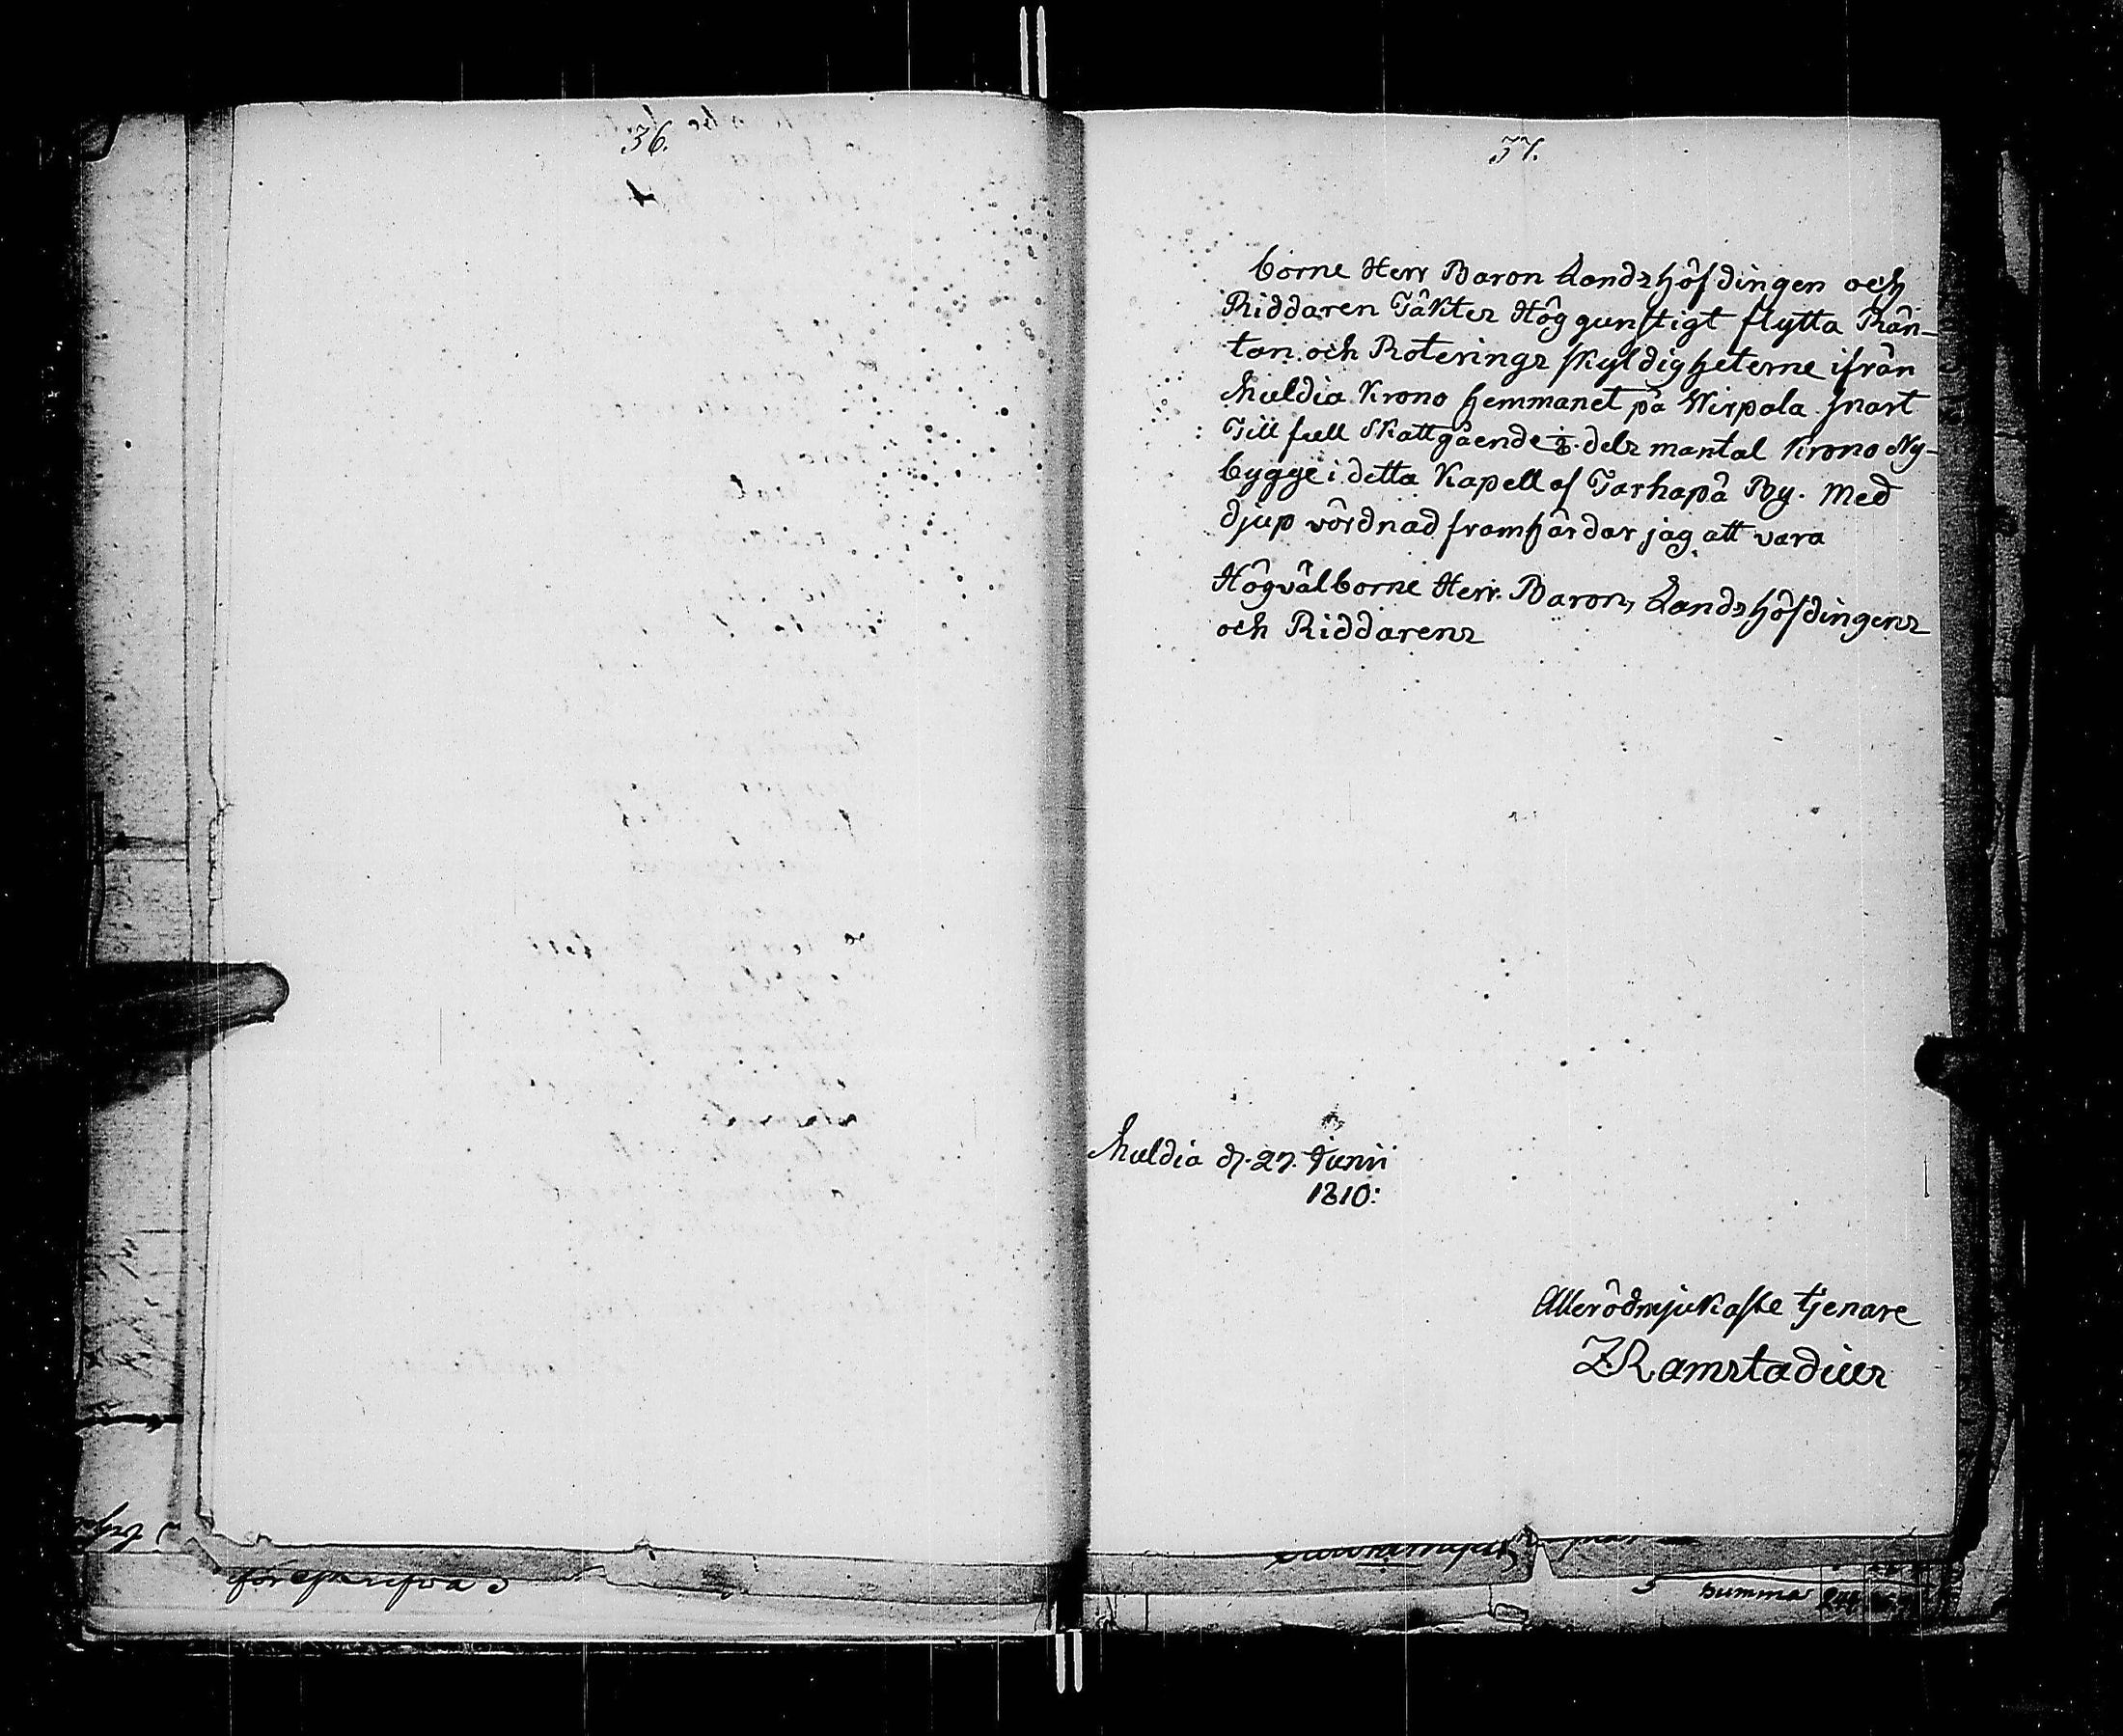 36.
37.
borne Herr Baron Landshöfdingen och
Riddaren Täktes Höggunstigt flytta Rän-
tan och Roterings skyldigheterne ifrån
Muldia Krono hemmanet på Wirpala snart
Till full Skattgående dels mantal Krono Ny-
bygge i detta Kapell af Tarhapå By. Med
djup vördnad framhärdar jag att vara
Högvälborne Herr Baron, Landshöfdingens
och Riddarens
Muldia d. 27. Junii
1810:
Allerödmjukaste tjenare
Z Ramstadius
Summa